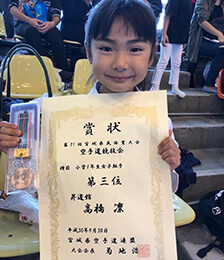 賞状
第71回宮城県民体育大会
空手道競技会
種目 小学1年生女子組手
第三位
昇道館
高橋 凛
平成30年9月30日
宮城県空手道連盟
大会会長 菊地浩